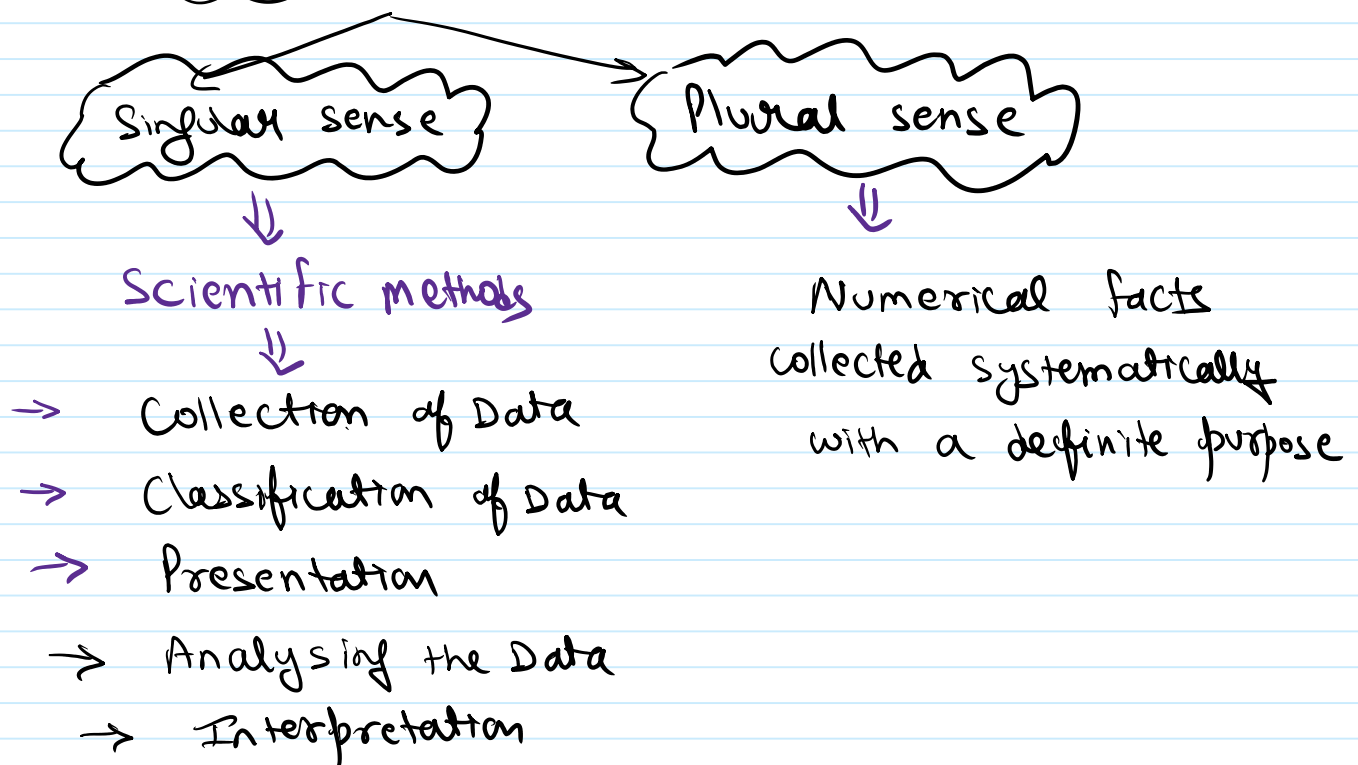 Singular sense
Plural sense
Scientific methods
Collection of Data
Classification of Data
Presentation
Analysing the Data
Interpretation
Numerical facts
collected systematically
with a definite purpose